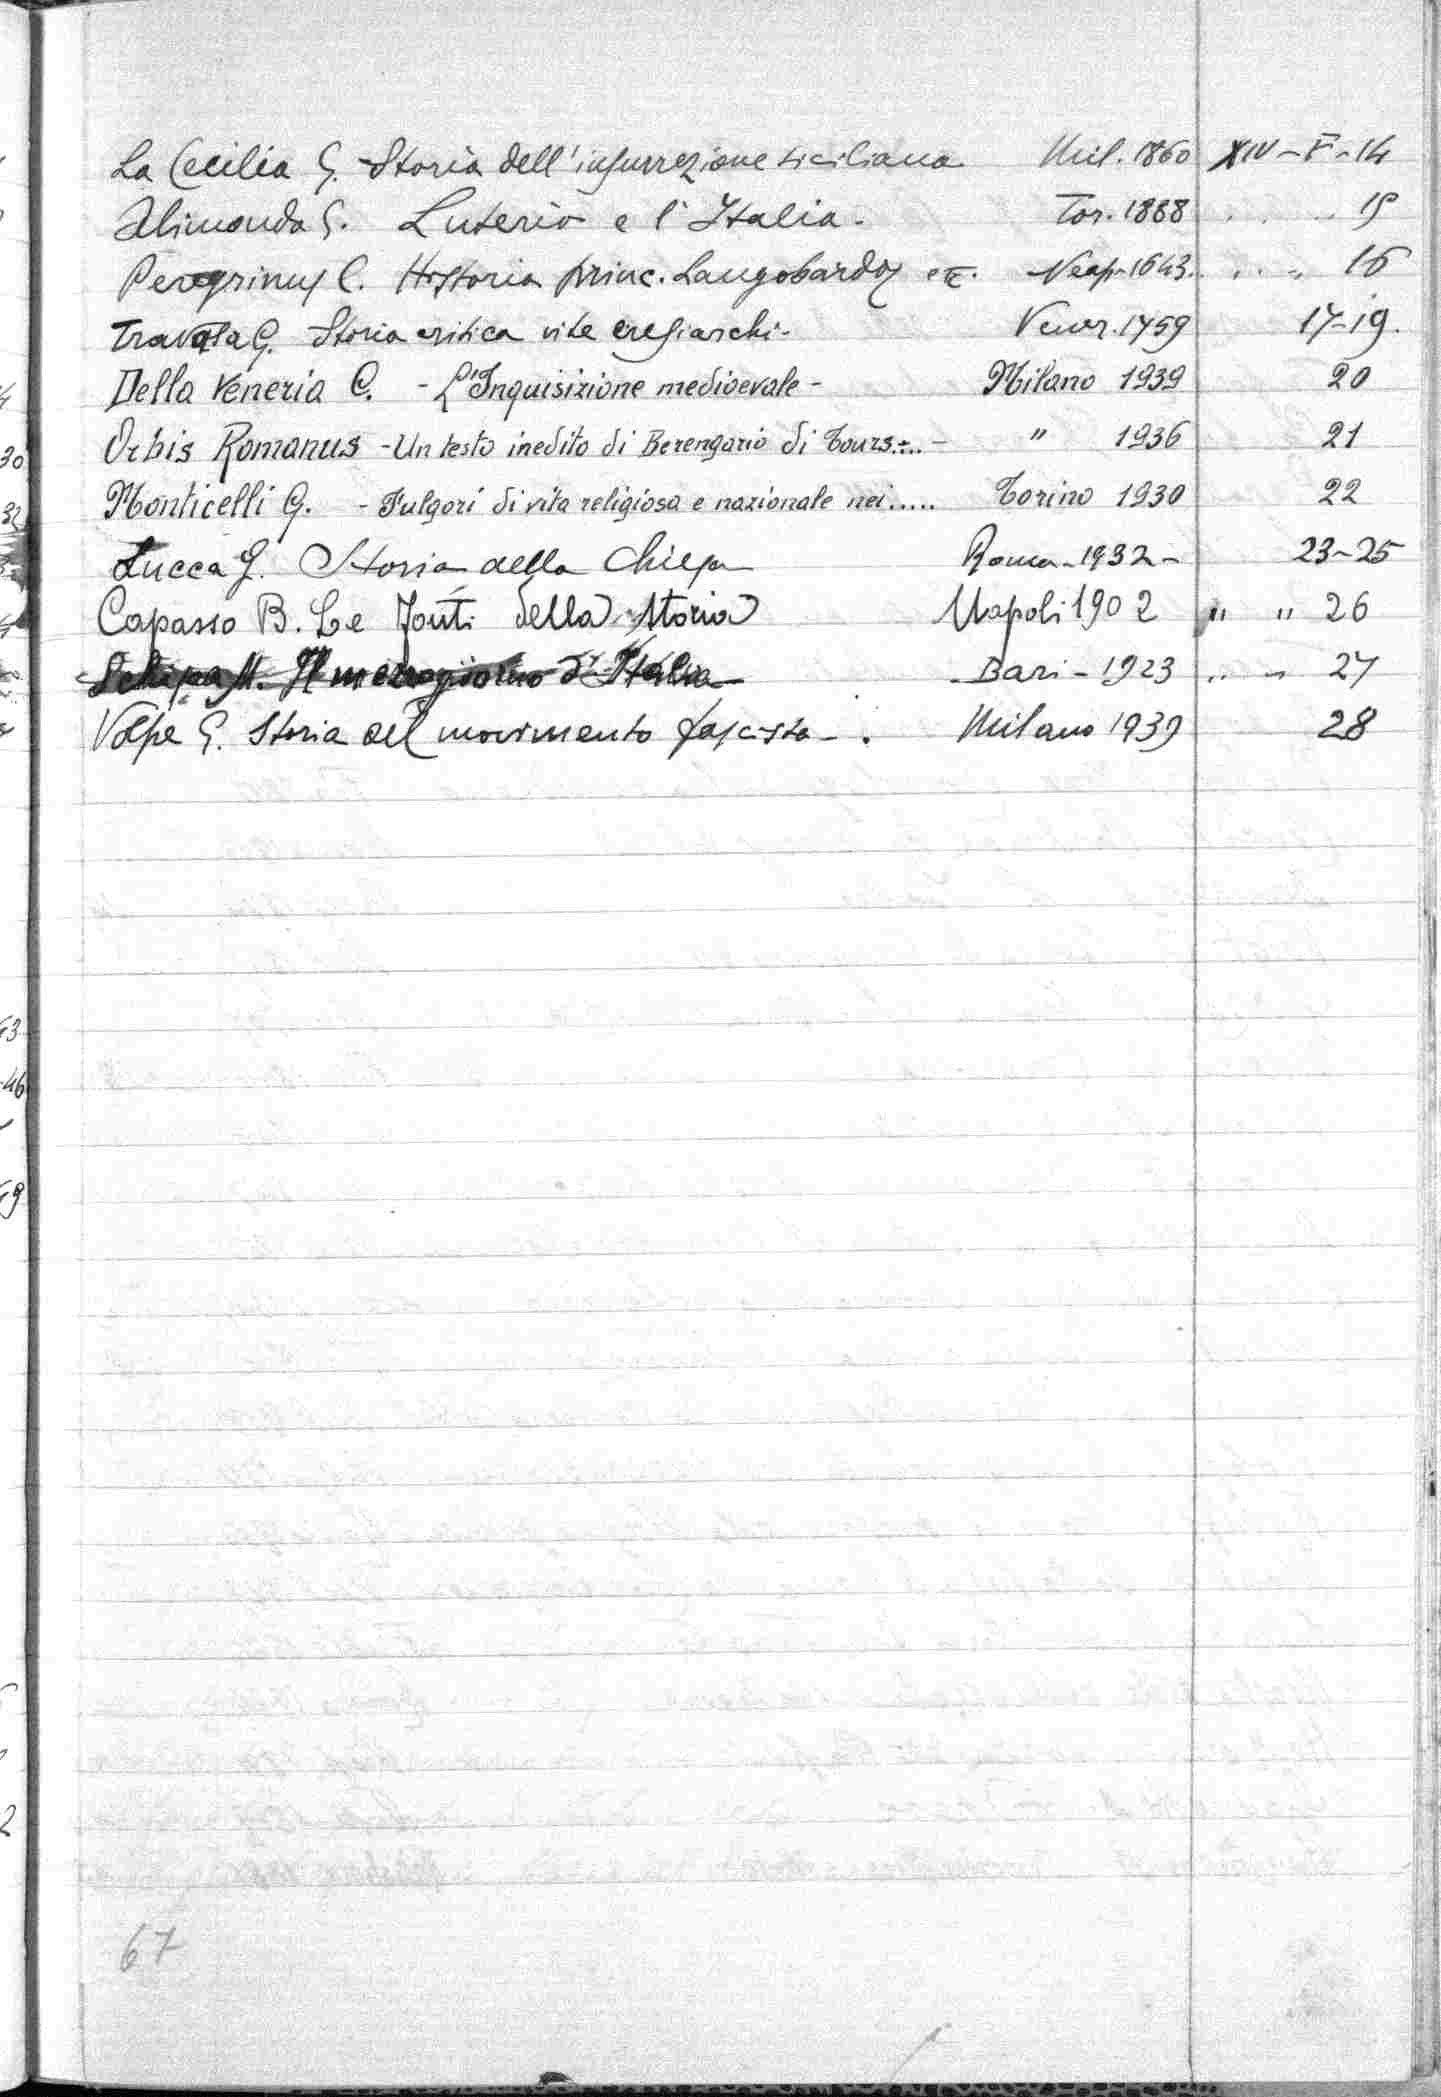 La Cecilia G. Storia dell'insurrezione siciliana Mil. 1860 XIV-F-14
Alimonda G. Lutero e l'Italia. Tor. 1888 . . . 15
Peregrinus C. Historia princ. Langobardor etc. Neap. 1643. . . . 16
Travasa G. Storia critica vite eresiarchi- Venez. 1759 17-19.
Della Veneria C. - L'Inquisizione medioevale - Milano 1939 20
Orbis Romanus - Un testo inedito di Berengario di Tours.... - " 1936 21
Monticelli G. - Fulgori di vita religiosa e nazionale nei..... Torino 1930 22
Lucca G. Storia della Chiesa Roma - 1932 - 23-25
Capasso B. Le Fonti della Storia Napoli 1902 " " 26
Schipa M. Il mezzogiorno d'Italia Bari - 1923 " " 27
Volpe G. Storia del movimento fascista - . Milano 1939 28
67